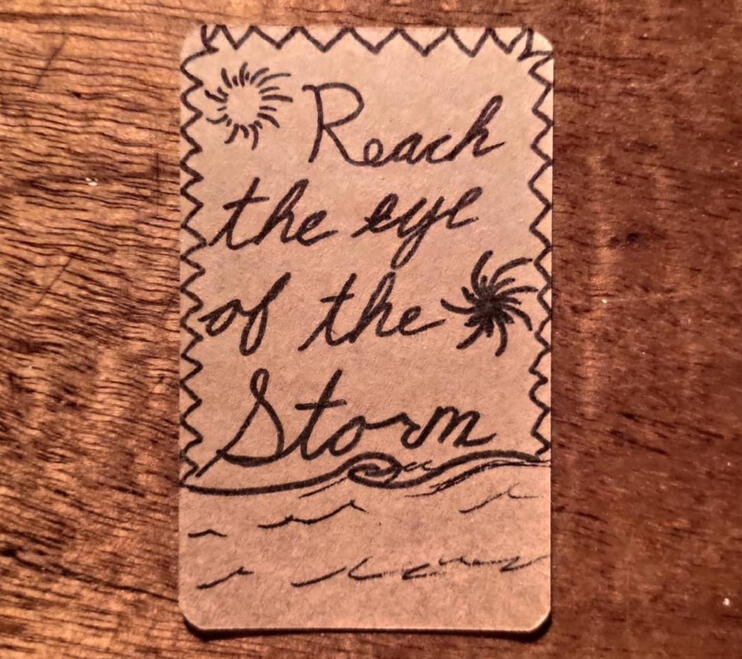 Reach
the eye
of the
Storm